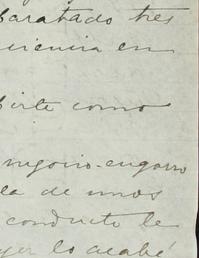 baratado tres
en
birte como
negocio-engorro
la de unos
conducto le
ayer lo acabé